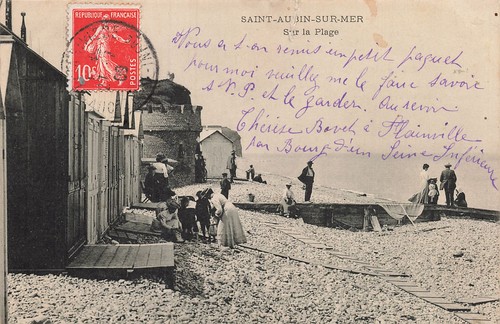 SAINT-AUBIN-SUR-MER
Sur la Plage
REPUBLIQUE FRANÇAISE
10
Vous a t-on remis un petit paquet
pour moi veuillez me le faire savoir
s.V.P. et le garder. Au revoir
Thérèse à Flainville
par Bourg-d'un Seine Inférieure